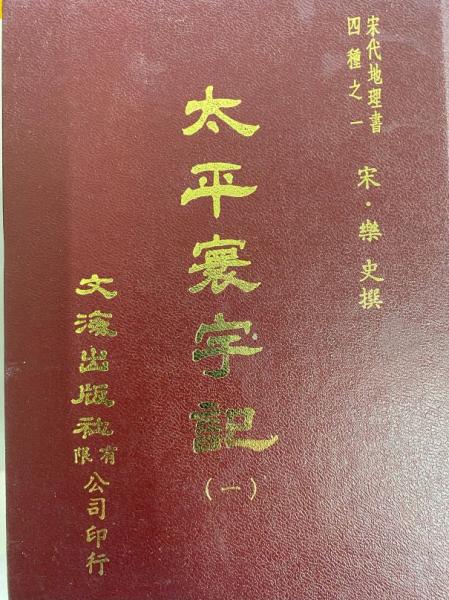 宋代地理書
四種之一
宋·樂史撰
太平寰宇記
(一)
文海出版社有限公司印行